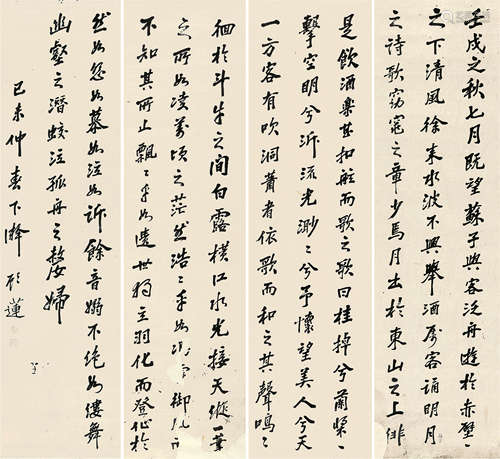 壬戌之秋七月既望蘇子與客泛舟遊於赤壁
之下清風徐來水波不興舉酒屬客誦明月
之詩歌窈窕之章少焉月出於東山之上徘
是飲酒樂甚扣舷而歌之歌曰桂棹兮蘭槳
擊空明兮泝流光渺〻兮予懷望美人兮天
一方客有吹洞簫者依歌而和之其聲鳴〻
徊於斗牛之間白露橫江水光接天縱一葦
之所如凌萬頃之茫然浩〻乎如馮虛御風而
不知其所止飄〻乎如遺世獨立羽化而登仙於
然如怨如慕如泣如訴餘音嫋不絕如縷舞
幽壑之潛蛟泣孤舟之嫠婦
己未仲春下澣 蓮